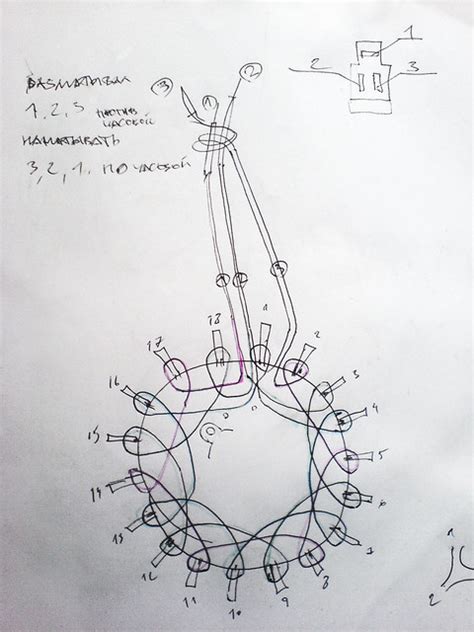 1
2 3
РАЗМАТЫВАЛ
1, 2, 3 ПРОТИВ
ЧАСОВОЙ
НАМАТЫВАТЬ
3, 2, 1. ПО ЧАСОВОЙ
3 1 2
1 2 3
18 1
17 2
16 3
4
15 5
14 6
13 7
12 8
11 10 9
1
2